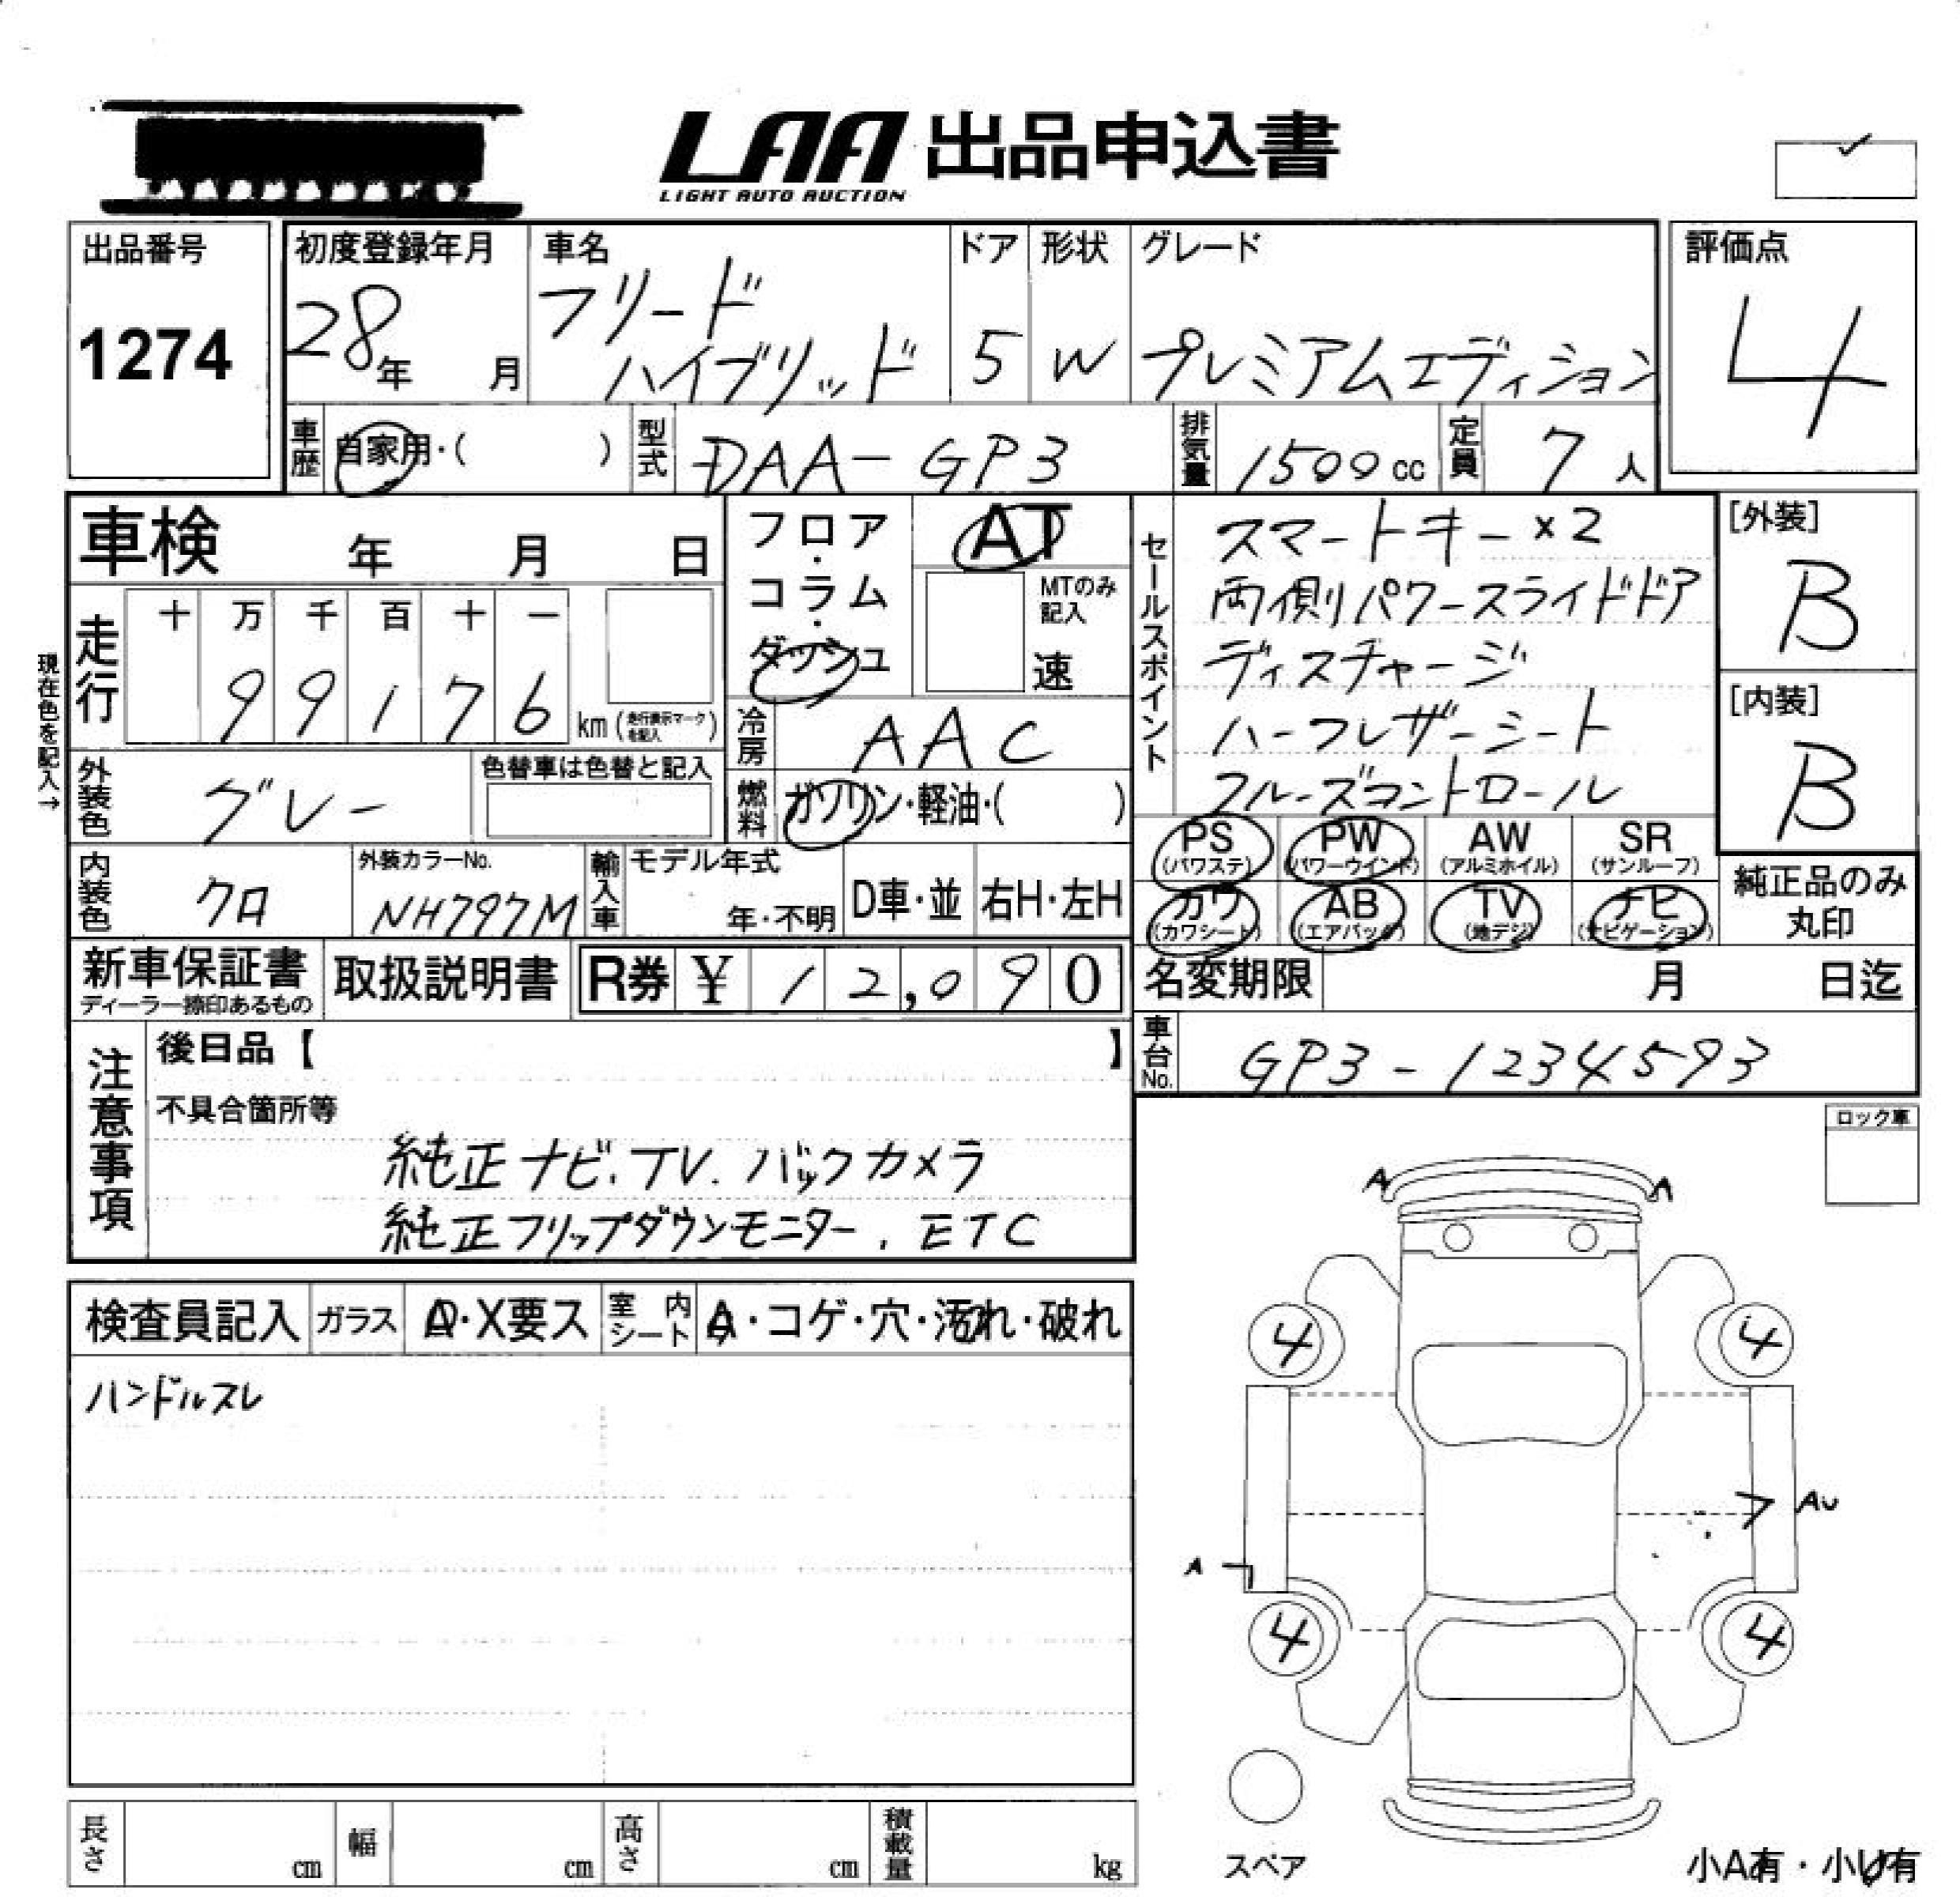 LAA 出品申込書
LIGHT AUTO AUCTION
出品番号
1274
初度登録年月
28年 月
車名
フリード
ハイブリッド
ドア
5
形状
W
グレード
プレミアムエディション
評価点
4
車歴 自家用・( )
型式 DAA-GP3
排気量 1500cc
定員 7人
車検 年 月 日
走行
十 万 千 百 十 一
9 9 1 7 6 km (走行表示マークを記入)
現在色を記入→
外装色 グレー
色替車は色替と記入
内装色 クロ
外装カラーNo.
NH797M
フロア・コラム・ダッシュ
AT
MTのみ記入
速
冷房 AAC
燃料 ガソリン・軽油・( )
輸入車 モデル年式
年・不明
D車・並 右H・左H
セールスポイント
スマートキー×2
両側パワースライドドア
ディスチャージ
ハーフレザーシート
クルーズコントロール
[外装]
B
[内装]
B
PS (パワステ) PW (パワーウインド) AW (アルミホイル) SR (サンルーフ)
カワ (カワシート) AB (エアバック) TV (地デジ) ナビ (ナビゲーション)
純正品のみ丸印
新車保証書
ディーラー捺印あるもの
取扱説明書
R券 ¥ 12,090
名変期限 月 日迄
車台No. GP3-1234593
注意事項
後日品【 】
不具合箇所等
純正ナビ.TV.バックカメラ
純正フリップダウンモニター.ETC
ロック車
検査員記入 ガラス A・X要ス 室内シート A・コゲ・穴・汚れ・破れ
ハンドルスレ
A A
4 4
AU
A
4 4
スペア
小A有・小U有
長さ cm 幅 cm 高さ cm 積載量 kg